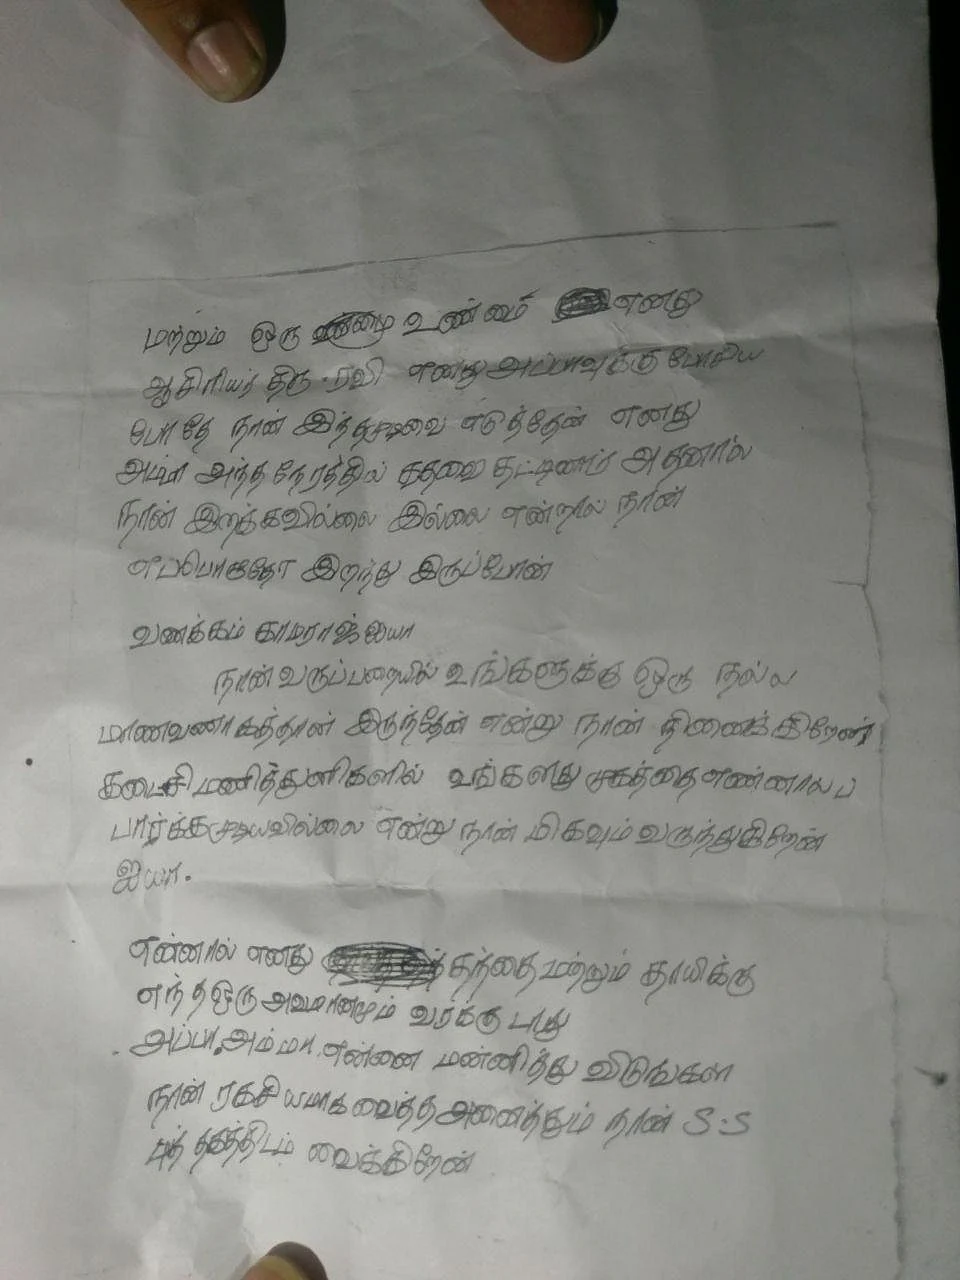 மற்றும் ஒரு உண்மை எனது
ஆசிரியர் திரு. ரவி எனது அப்பாவுக்கு போசிய
போதே நான் இந்தமுடிவை எடுத்தேன் எனது
அம்மா அந்த நேரத்தில் கதவை தட்டினார் அதனால்
நான் இறக்கவில்லை இல்லை என்றால் நான்
எப்பொகுதோ இறந்து இருப்போன்
வணக்கம் காமராஜ் ஐயா
நான் வகுப்பறையில் உங்களுக்கு ஒரு நல்ல
மாணவணாகத்தான் இருந்தேன் என்று நான் நினைக்கிறேன்
கடைசி மணித்துளிகளில் உங்களது முகத்தை எண்ணால ப
பார்க்கமுடியவில்லை என்று நான் மிகவும் வருந்துகிறேன்
ஐயா.
என்னால் எனது தந்தை மற்றும் தாயிக்கு
எந்த ஒரு அவமானமும் வரக்கு டாது
அப்பா, அம்மா என்னை மண்ணித்து விடுங்கள
நான் ரகசியமாக வைத்த அனைத்தும் நான் S.S
வைக்கிறேன்